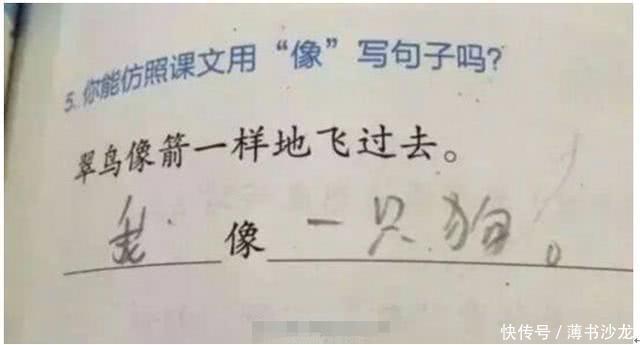 5. 你能仿照课文用“像”写句子吗?
翠鸟像箭一样地飞过去。
我像一只狗。
快传号/薄书沙龙